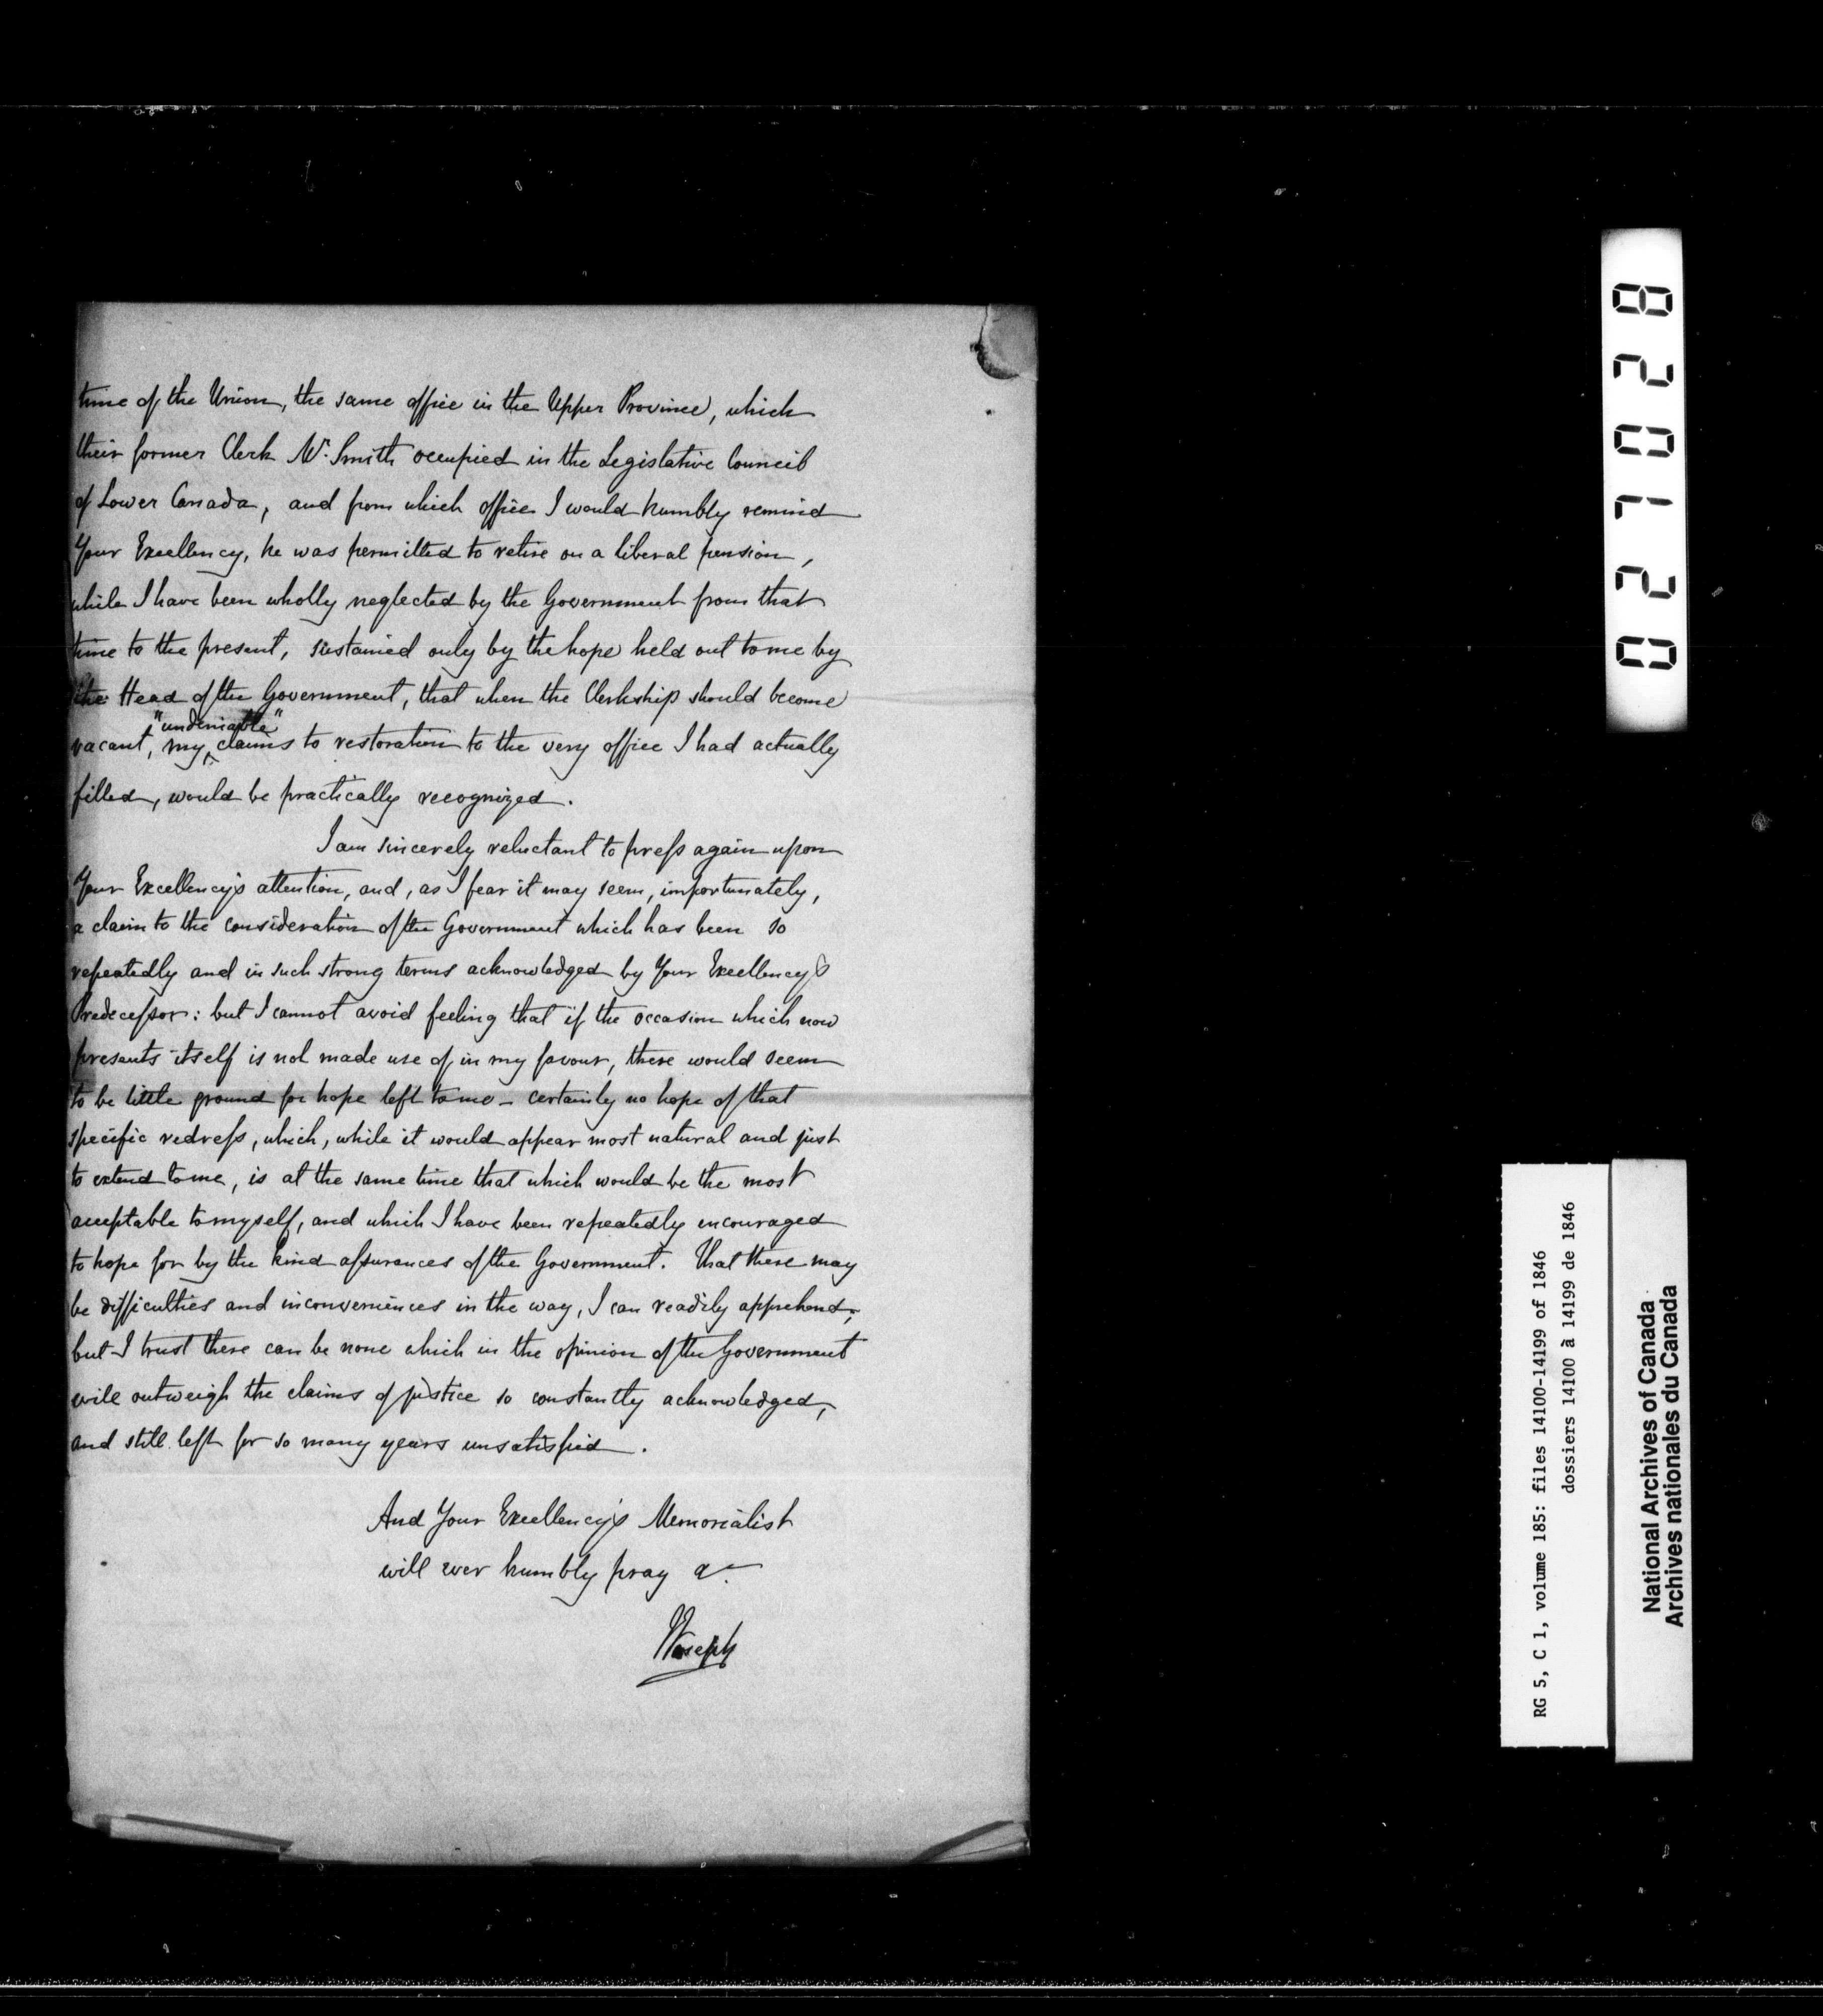 time of the Union, the same office in the Upper Province, which
their former Clerk Mr. Smith occupied in the Legislative Council
of Lower Canada, and from which office I would humbly remind
Your Excellency, he was permitted to retire on a liberal pension,
while I have been wholly neglected by the Government from that
time to the present, sustained only by the hope held out to me by
the Head of the Government, that when the Clerkship should become
"undeniable"
vacant, my claims to restoration to the very office I had actually
filled, would be practically recognized.
I am sincerely reluctant to press again upon
Your Excellency's attention, and, as I fear it may seem, importunately,
a claim to the consideration of the Government which has been so
repeatedly and in such strong terms acknowledged by Your Excellency's
Predecessor: but I cannot avoid feeling that if the occasion which now
presents itself is not made use of in my favour, there would seem
to be little ground for hope left to me - certainly no hope of that
specific redress, which, while it would appear most natural and just
to extend to me, is at the same time that which would be the most
acceptable to myself, and which I have been repeatedly encouraged
to hope for by the kind assurances of the Government. That there may
be difficulties and inconveniences in the way, I can readily apprehend;
but I trust there can be none which in the opinion of the Government
will outweigh the claims of justice so constantly acknowledged,
and still left for so many years unsatisfied.
And Your Excellency's Memorialist
will ever humbly pray &c.
Joseph
027028
RG 5, C 1, volume 185: files 14100-14199 of 1846
dossiers 14100 à 14199 de 1846
National Archives of Canada
Archives nationales du Canada